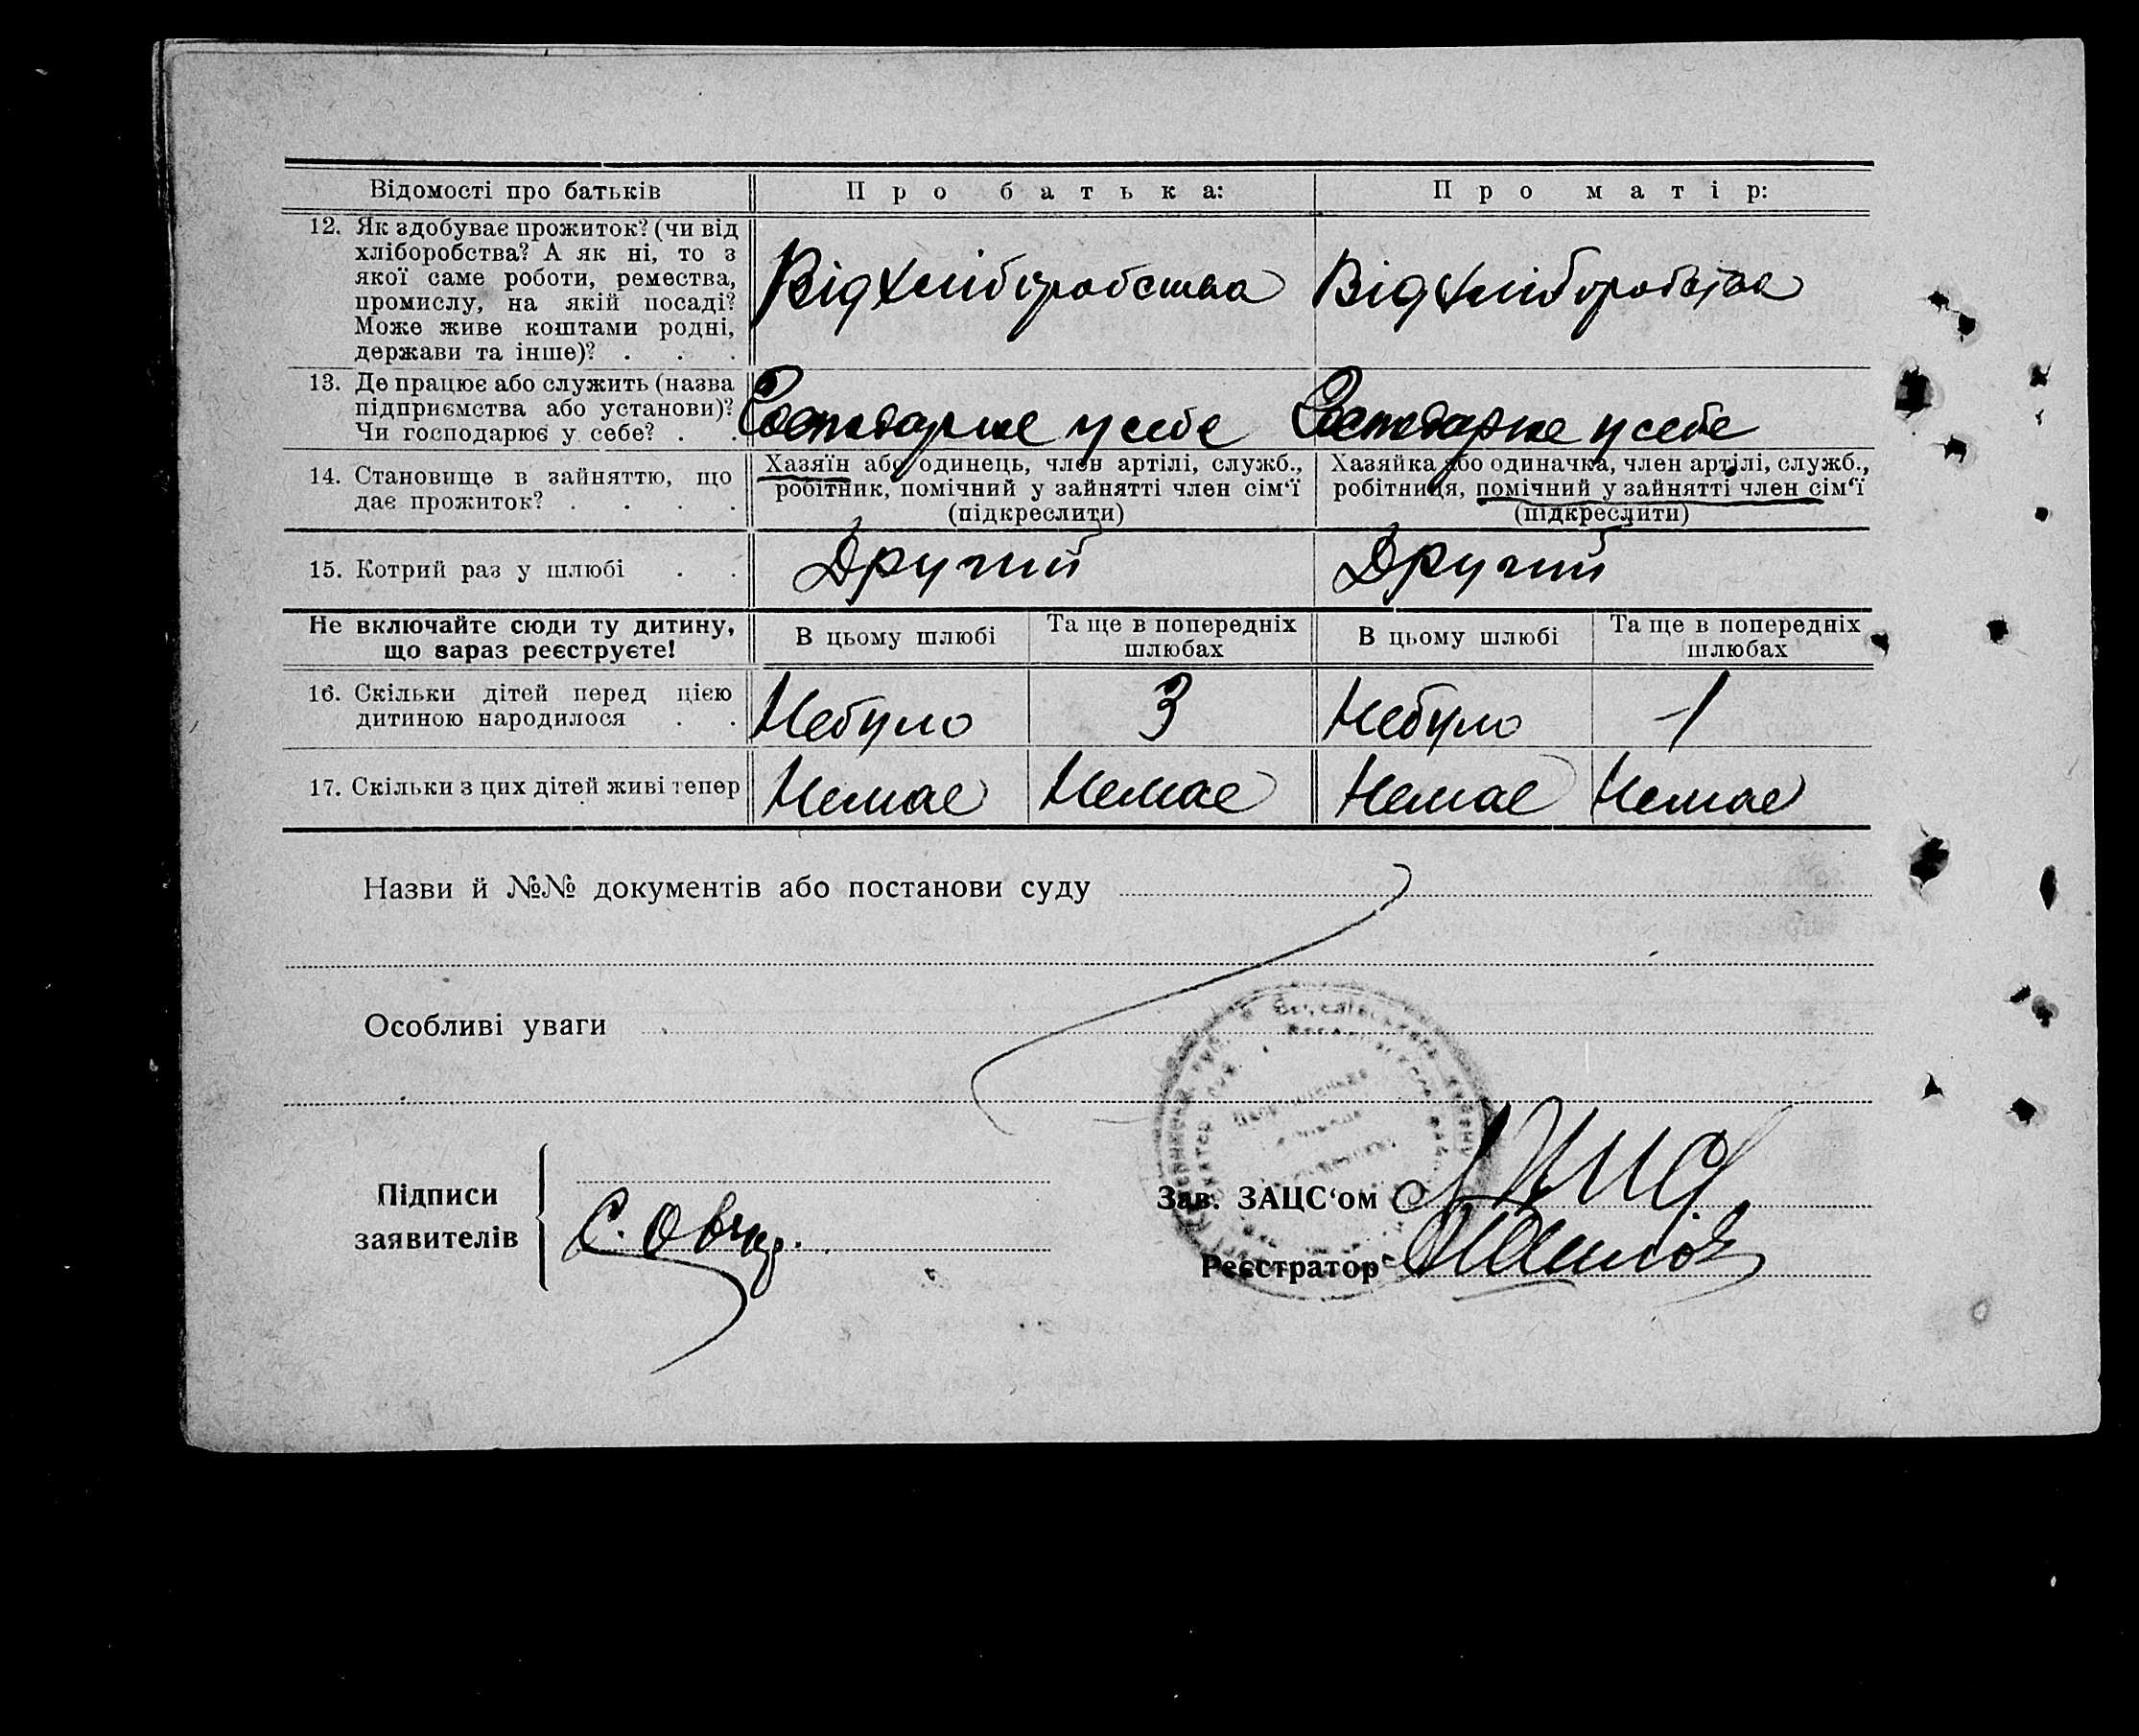 Відомості про батьків
Про батька:
Про матір:
12. Як здобуває прожиток? (чи від
хліборобства? А як ні, то з
якої саме роботи, ремества,
промислу, на якій посаді?
Може живе коштами родні,
держави та інше)? . . .
Від хліборобства
Від хліборобства
13. Де працює або служить (назва
підприємства або установи)?
Чи господарює у себе? . .
Господарює у себе
Господарює у себе
14. Становище в зайняттю, що
дає прожиток? . . . .
Хазяїн або одинець, член артілі, служб.,
робітник, помічний у зайнятті член сім‘ї
(підкреслити)
Хазяйка або одиначка, член артілі, служб.,
робітниця, помічний у зайнятті член сім‘ї
(підкреслити)
15. Котрий раз у шлюбі . .
Другий
Другий
Не включайте сюди ту дитину,
що зараз реєструєте!
В цьому шлюбі
Та ще в попередніх
шлюбах
В цьому шлюбі
Та ще в попередніх
шлюбах
16. Скільки дітей перед цією
дитиною народилося . .
Небуло
3
Небуло
1
17. Скільки з цих дітей живі тепер
Немає
Немає
Немає
Немає
Назви й №№ документів або постанови суду
Особливі уваги
Підписи
заявителів
С. Овчар.
Зав. ЗАЦС‘ом
Реєстратор